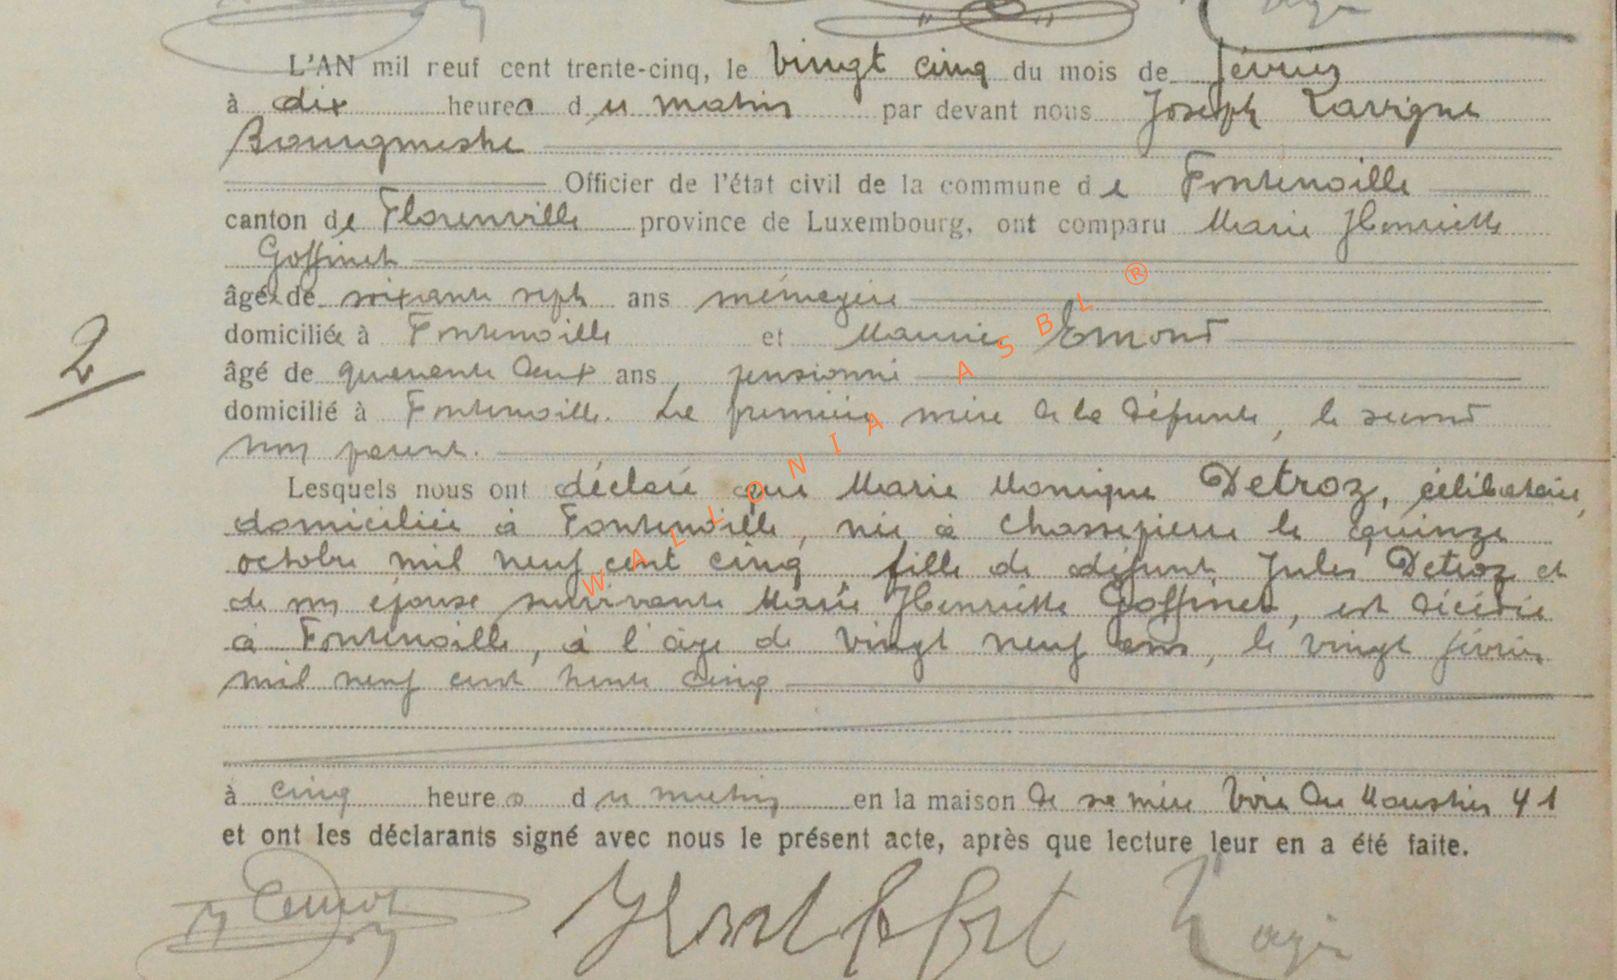 L'AN mil neuf cent trente-cinq, le vingt cinq du mois de février
à dix heures du matin par devant nous Joseph Lavigne
Bourgmestre
Officier de l'état civil de la commune de Fontenoille
canton de Florenville province de Luxembourg, ont comparu Marie Henriette
Goffinet
âgée de soixante sept ans ménagère
domiciliée à Fontenoille et Maurice Emond
âgé de quarante deux ans, pensionné
domicilié à Fontenoille. La première mère de la défunte, le second
non parent.
2
Lesquels nous ont déclaré que Marie Monique Detroz, célibataire,
domiciliée à Fontenoille, née à Chassepierre le quinze
octobre mil neuf cent cinq, fille de défunt Jules Detroz et
de son épouse survivante Marie Henriette Goffinet, est décédée
à Fontenoille, à l'âge de vingt neuf ans, le vingt février
mil neuf cent trente cinq
à cinq heures du matin en la maison de sa mère Voie du Moustier 41
et ont les déclarants signé avec nous le présent acte, après que lecture leur en a été faite.
WALLONIA ASBL ®